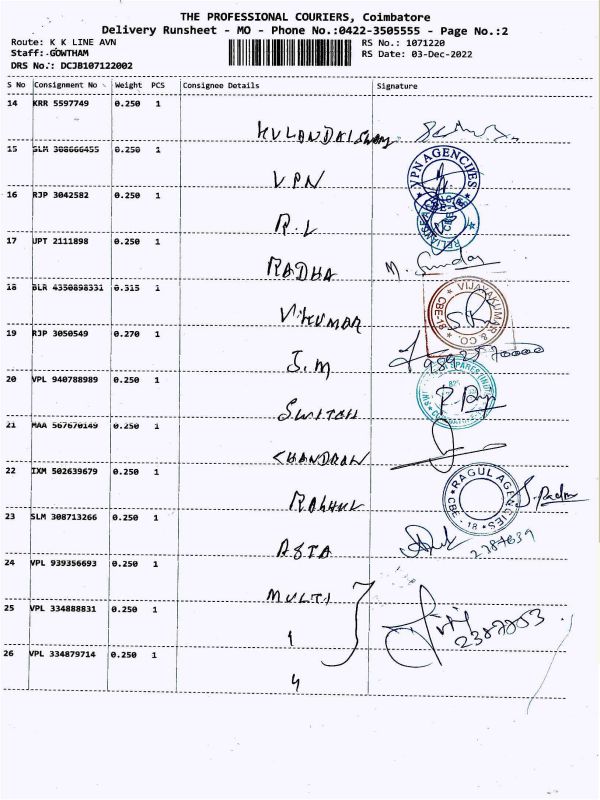 THE PROFESSIONAL COURIERS, Coimbatore
Delivery Runsheet - MO - Phone No.:0422-3505555 - Page No.:2
Route: K K LINE AVN
RS No.: 1071220
Staff: GOWTHAM
RS Date: 03-Dec-2022
DRS No.: DCJB107122002
S No Consignment No Weight PCS Consignee Details Signature
14 KRR 5597749 0.250 1
KULANDAISWAMY
15 SLM 308666455 0.250 1
VPN
VPN AGENCIES
16 RJP 3042582 0.250 1
R.L
17 UPT 2111898 0.250 1
RADHA M. Sunda
18 BLR 4350898331 0.315 1
V.KUMAR
VIJAYAKUMAR & CO. CBE-18
19 RJP 3050549 0.270 1
J.M
20 VPL 940788989 0.250 1
SWITCH
21 MAA 567670149 0.250 1
CHANDRAN
22 IXM 502639679 0.250 1
RAGHUL
RAGUL AGENCIES CBE - 18
23 SLM 308713266 0.250 1
ASTA
24 VPL 939356693 0.250 1
MULTI
25 VPL 334888831 0.250 1
26 VPL 334879714 0.250 1